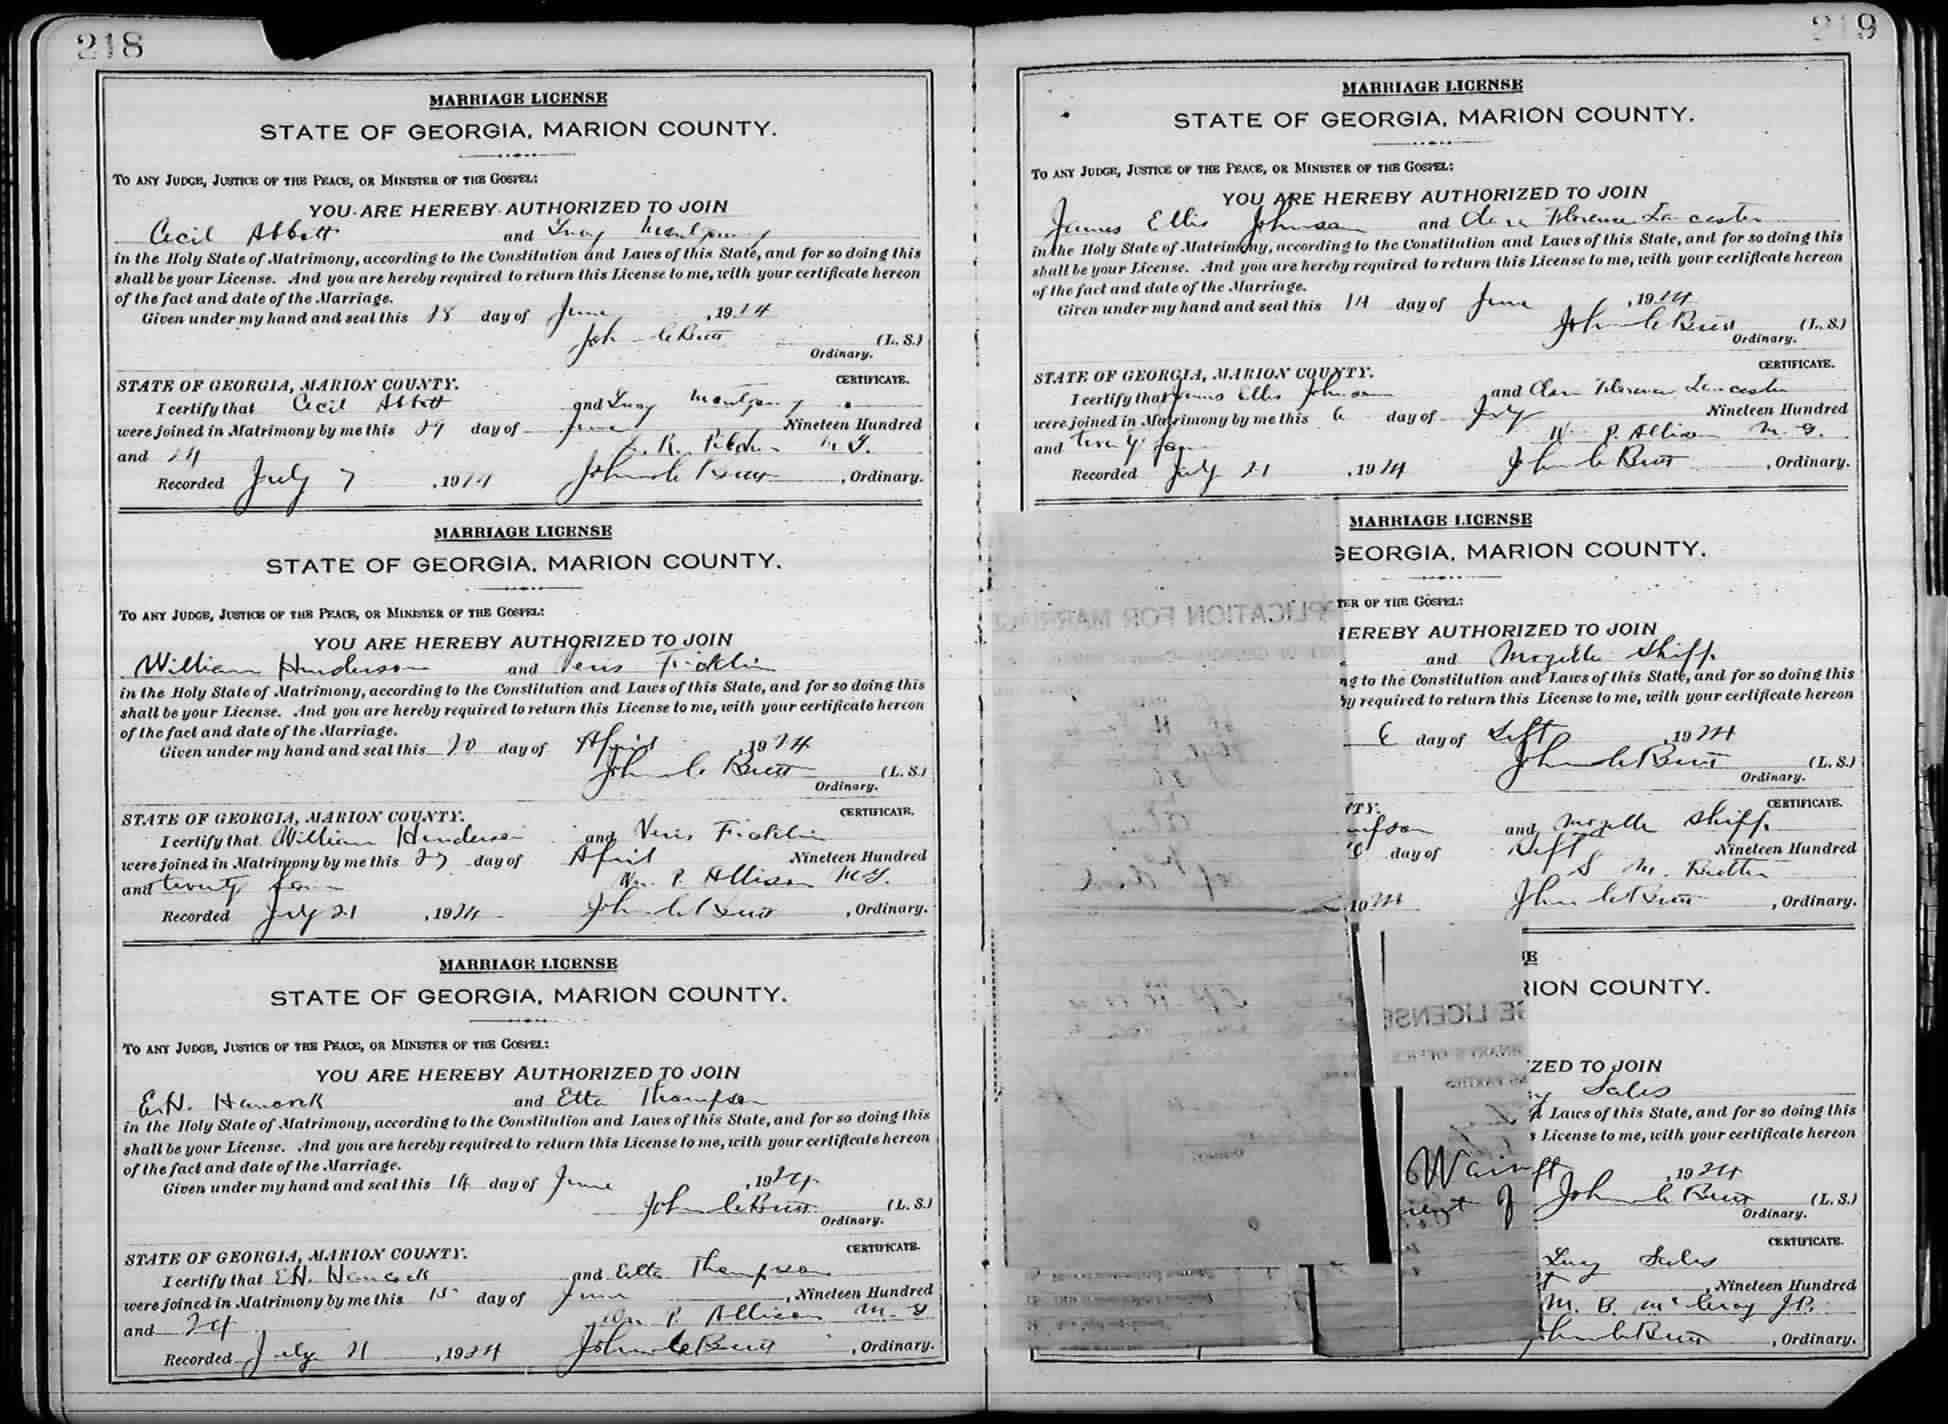 218
MARRIAGE LICENSE
STATE OF GEORGIA, MARION COUNTY.
TO ANY JUDGE, JUSTICE OF THE PEACE, OR MINISTER OF THE GOSPEL:
YOU ARE HEREBY AUTHORIZED TO JOIN
Cecil Abbott and Lucy Montgomery
in the Holy State of Matrimony, according to the Constitution and Laws of this State, and for so doing this
shall be your License. And you are hereby required to return this License to me, with your certificate hereon
of the fact and date of the Marriage.
Given under my hand and seal this 28 day of June, 1924
John C Butt (L. S.)
Ordinary.
CERTIFICATE.
STATE OF GEORGIA, MARION COUNTY.
I certify that Cecil Abbott and Lucy Montgomery
were joined in Matrimony by me this 29 day of June Nineteen Hundred
and 24 M G.
Recorded July 7, 1924 John C Butt, Ordinary.
MARRIAGE LICENSE
STATE OF GEORGIA, MARION COUNTY.
TO ANY JUDGE, JUSTICE OF THE PEACE, OR MINISTER OF THE GOSPEL:
YOU ARE HEREBY AUTHORIZED TO JOIN
William Henderson and Veris Ficklin
in the Holy State of Matrimony, according to the Constitution and Laws of this State, and for so doing this
shall be your License. And you are hereby required to return this License to me, with your certificate hereon
of the fact and date of the Marriage.
Given under my hand and seal this 20 day of April, 1924
John C Butt (L. S.)
Ordinary.
CERTIFICATE.
STATE OF GEORGIA, MARION COUNTY.
I certify that William Henderson and Veris Ficklin
were joined in Matrimony by me this 27 day of April Nineteen Hundred
and twenty four Wm. P. Allison M G.
Recorded July 21, 1924 John C Butt, Ordinary.
MARRIAGE LICENSE
STATE OF GEORGIA, MARION COUNTY.
TO ANY JUDGE, JUSTICE OF THE PEACE, OR MINISTER OF THE GOSPEL:
YOU ARE HEREBY AUTHORIZED TO JOIN
E.H. Hancock and Etta Thompson
in the Holy State of Matrimony, according to the Constitution and Laws of this State, and for so doing this
shall be your License. And you are hereby required to return this License to me, with your certificate hereon
of the fact and date of the Marriage.
Given under my hand and seal this 14 day of June, 1924.
John C Butt (L. S.)
Ordinary.
CERTIFICATE.
STATE OF GEORGIA, MARION COUNTY.
I certify that E.H. Hancock and Etta Thompson
were joined in Matrimony by me this 15 day of June, Nineteen Hundred
and 24 Wm. P Allison M G
Recorded July 21, 1924 John C Butt, Ordinary.
219
MARRIAGE LICENSE
STATE OF GEORGIA, MARION COUNTY.
TO ANY JUDGE, JUSTICE OF THE PEACE, OR MINISTER OF THE GOSPEL:
YOU ARE HEREBY AUTHORIZED TO JOIN
James Ellis Johnson and Clara Florence Lancaster
in the Holy State of Matrimony, according to the Constitution and Laws of this State, and for so doing this
shall be your License. And you are hereby required to return this License to me, with your certificate hereon
of the fact and date of the Marriage.
Given under my hand and seal this 14 day of June, 1924
John C Butt (L. S.)
Ordinary.
CERTIFICATE.
STATE OF GEORGIA, MARION COUNTY.
I certify that James Ellis Johnson and Clara Florence Lancaster
were joined in Matrimony by me this 6 day of July Nineteen Hundred
and twenty four Wm P. Allison M. G.
Recorded July 21, 1924 John C Butt, Ordinary.
MARRIAGE LICENSE
GEORGIA, MARION COUNTY.
TER OF THE GOSPEL:
HEREBY AUTHORIZED TO JOIN
and Mozelle Shipp
ng to the Constitution and Laws of this State, and for so doing this
by required to return this License to me, with your certificate hereon
6 day of Sept, 1924
John C Butt (L. S.)
Ordinary.
CERTIFICATE.
TY.
and Mozelle Shipp
day of Sept Nineteen Hundred
S M.
1924 John C Butt, Ordinary.
RION COUNTY.
ZED TO JOIN
Sales
Laws of this State, and for so doing this
s License to me, with your certificate hereon
, 1924
John C Butt (L. S.)
Ordinary.
CERTIFICATE.
Lucy Sales
, Nineteen Hundred
M. B. McCrory J.P.
John C Butt, Ordinary.